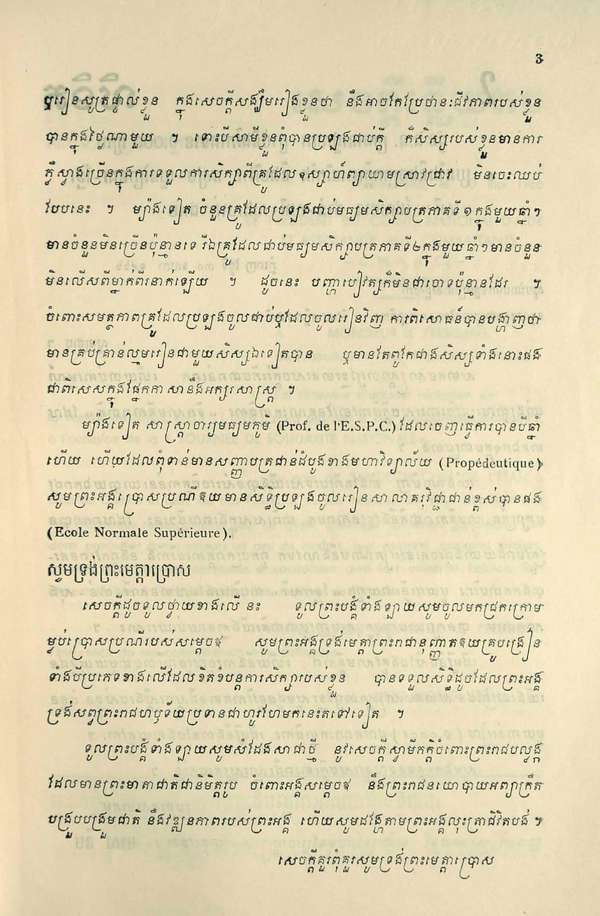 3
ឬរៀនសូត្រផ្ទាល់ខ្លួន ក្នុងសេចក្ដីសង្ឃឹមរៀងខ្លួនថា នឹងអាចកែប្រែឋានៈជីវភាពរបស់ខ្លួន
បានក្នុងថ្ងៃណាមួយ ។ ទោះបីសាមីខ្លួនពុំបានប្រឡងជាប់ក្ដី ក៏សិស្សរបស់ខ្លួនមានការ
ភ្លឺស្វាងច្រើនក្នុងការទទួលការសិក្សាពីគ្រូដែលឧស្សាហ៍ព្យាយាមស្រាវជ្រាវ មិនចេះឈប់
បែបនេះ ។ ម្យ៉ាងទៀត ចំនួនគ្រូដែលប្រឡងជាប់មធ្យមសិក្សាបត្រភាគទី១ក្នុងមួយឆ្នាំៗ
មានចំនួនមិនច្រើនប៉ុន្មានទេ រីឯគ្រូដែលជាប់មធ្យមសិក្សាបត្រភាគទី២ក្នុងមួយឆ្នាំៗមានចំនួន
មិនលើសពីម្នាក់ពីរនាក់ឡើយ ។ ដូចនេះ បញ្ហាបៀវត្សក៏មិនជាចោទប៉ុន្មានដែរ ។
ចំពោះសមត្ថភាពគ្រូដែលប្រឡងចូលជាប់ឬដែលចូលរៀនវិញ ការពិសោធន៍បានបង្ហាញថា
មានគ្រប់គ្រាន់ល្មមរៀនជាមួយសិស្សឯទៀតបាន ឬមានតែពូកែជាងសិស្សទាំងនោះផង
ជាពិសេសក្នុងផ្នែកភាសានឹងអក្សរសាស្ត្រ ។
ម្យ៉ាងទៀត សាស្ត្រាចារ្យមធ្យមភូមិ (Prof. de l'E.S.P.C.) ដែលចេញធ្វើការបានបីឆ្នាំ
ហើយ ហើយដែលពុំទាន់មានសញ្ញាបត្រជាន់ដំបូងខាងមហាវិទ្យាល័យ (Propédeutique)
សូមព្រះអង្គប្រោសប្រណីឱយមានសិទ្ធិប្រឡងចូលរៀនសាលាគរុវិជ្ជាជាន់ខ្ពស់បានផង
(Ecole Normale Supérieure).
សូមទ្រង់ព្រះមេត្តាប្រោស
សេចក្ដីដូចទូលថ្វាយខាងលើនេះ ទូលព្រះបង្គំទាំងឡាយសូមចូលមកជ្រកក្រោម
ម្លប់ប្រោសប្រណីរបស់សម្ដេចឪ សូមព្រះអង្គទ្រង់មេត្តាព្រះរាជានុញ្ញាតឱយគ្រូបង្រៀន
ទាំងបីប្រភេទខាងលើដែលខិតខំបន្តការសិក្សារបស់ខ្លួន បានទទួលសិទ្ធិដូចដែលព្រះអង្គ
ទ្រង់សព្វព្រះរាជហឫទ័យប្រទានជាហូរហែមកនេះតទៅទៀត ។
ទូលព្រះបង្គំទាំងឡាយសូមសំដែងសាជាថ្មី នូវសេចក្ដីស្វាមីភក្ដិចំពោះព្រះរាជបល្ល័ង្ក
ដែលមានព្រះមាតាជាតិជានិមិត្តរូប ចំពោះអង្គសម្ដេចឪ នឹងព្រះរាជនយោបាយអព្យាក្រឹត
បង្រួបបង្រួមជាតិ នឹងវឌ្ឍនភាពរបស់ព្រះអង្គ ហើយសូមដង្ហែតាមព្រះអង្គលុះត្រាជីវិតបង់ ។
សេចក្ដីគួរពុំគួរសូមទ្រង់ព្រះមេត្តាប្រោស